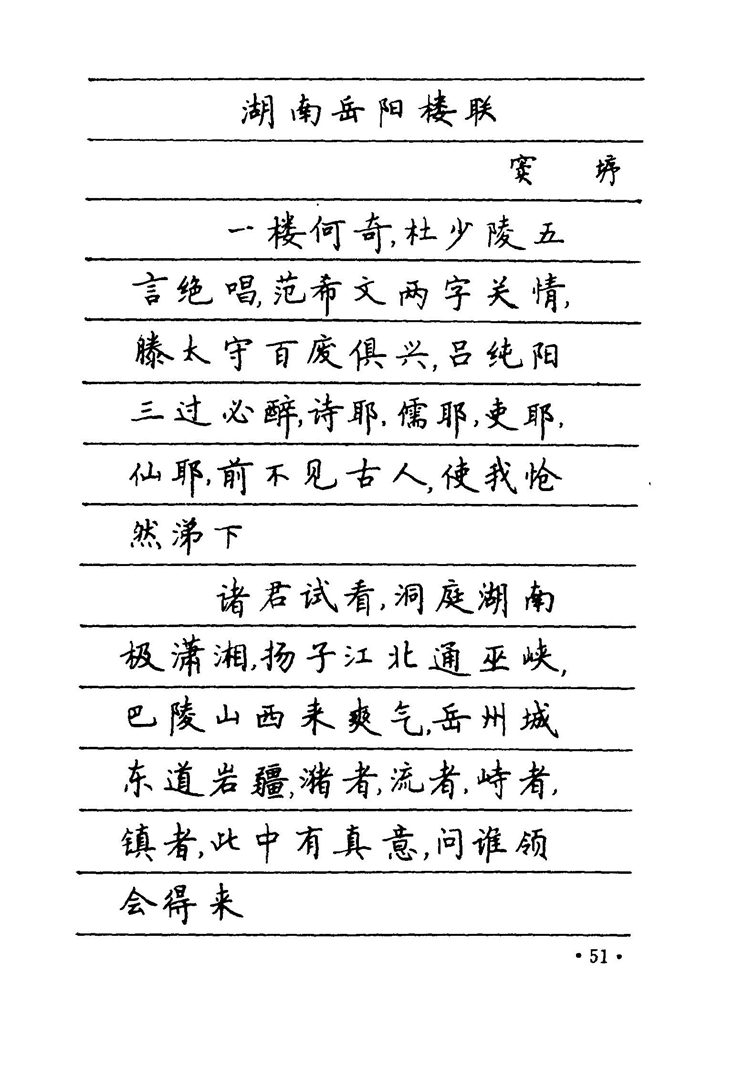 湖南岳阳楼联
窦 垿
一楼何奇,杜少陵五
言绝唱,范希文两字关情,
滕太守百废俱兴,吕纯阳
三过必醉,诗耶,儒耶,吏耶,
仙耶,前不见古人,使我怆
然涕下
诸君试看,洞庭湖南
极潇湘,扬子江北通巫峡,
巴陵山西来爽气,岳州城
东道岩疆,潴者,流者,峙者,
镇者,此中有真意,问谁领
会得来
·51·